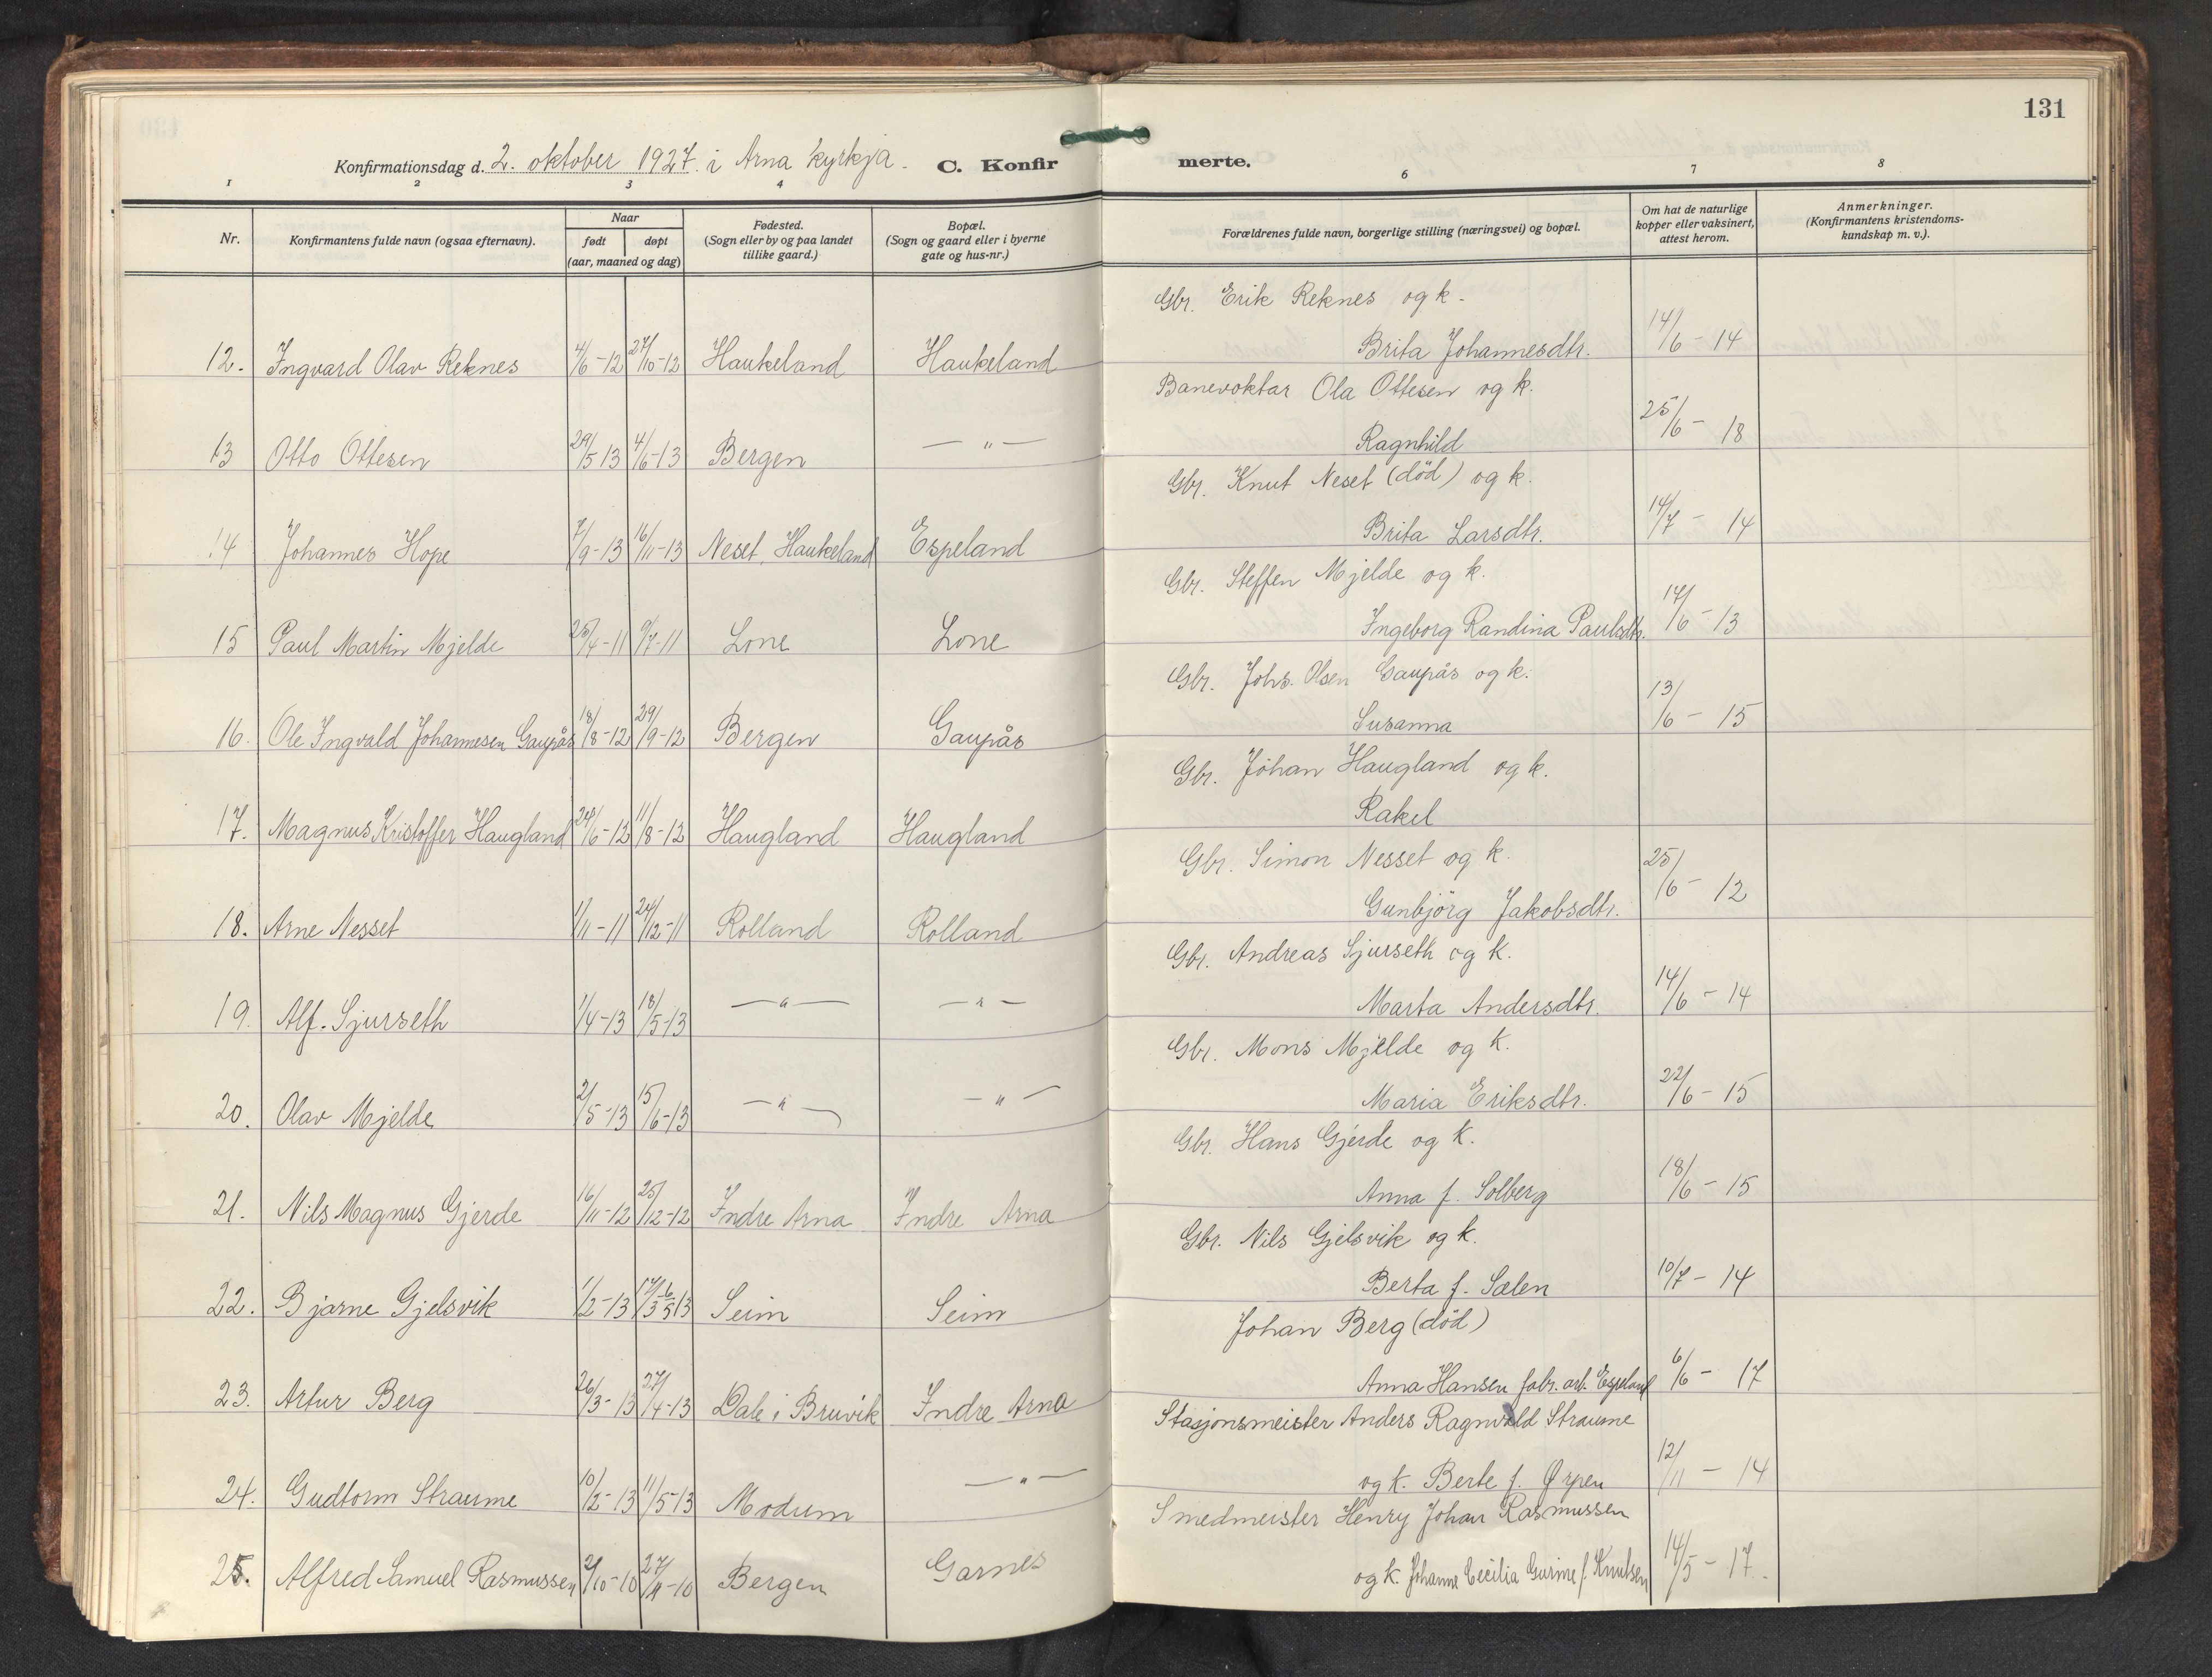 131
Konfirmationsdag d. 2. oktober 1927. i Arna kyrkja. C. Konfirmerte.
1 2 3 4 6 7 8
Nr. Konfirmantens fulde navn (ogsaa efternavn). Naar født døpt (aar, maaned og dag) Fødested. (Sogn eller by og paa landet tillike gaard.) Bopæl. (Sogn og gaard eller i byerne gate og hus-nr.) Forældrenes fulde navn, borgerlige stilling (næringsvei) og bopæl. Om hat de naturlige kopper eller vaksinert, attest herom. Anmerkninger. (Konfirmantens kristendoms-kundskap m. v.).
Gbr. Erik Reknes og k.
12. Ingvard Olav Reknes 4/6-12 27/10-12 Haukeland Haukeland Brita Johannesdtr. 14/6-14
Banevoktar Ola Ottesen og k.
13 Otto Ottesen 29/5 13 4/6-13 Bergen — " — Ragnhild 25/6- 18
Gbr. Knut Neset (död) og k.
14 Johannes Hope 7/9-13 16/11-13 Neset, Haukeland Espeland Brita Larsdtr. 14/7- 14
Gbr. Steffen Mjelde og k.
15 Paul Martin Mjelde 25/4-11 9/7-11 Lone Lone Ingeborg Randina Paulsdtr. 14/6-13
Gbr. Johs. Olsen Gaupås og k.
16. Ole Ingvald Johannesen Gaupås 18/8-12 29/9-12 Bergen Gaupås Susanna 13/6-15
Gbr. Johan Haugland og k.
17. Magnus Kristoffer Haugland 24/6-12 11/8-12 Haugland Haugland Rakel
Gbr. Simon Nesset og k.
18. Arne Nesset 1/11-11 24/12-11 Rolland Rolland Gunbjörg Jakobsdtr. 25/6- 12
Gbr. Andreas Sjurseth og k.
19. Alf. Sjurseth 1/4-13 18/5-13 — " — — " — Marta Andersdtr. 14/6-14
Gbr. Mons Mjelde og k.
20. Olav Mjelde 2/5-13 15/6-13 — " — — " — Maria Eriksdtr. 22/6-15
Gbr. Hans Gjerde og k.
21. Nils Magnus Gjerde 16/11-12 25/12-12 Indre Arna Indre Arna Anna f. Solberg 18/6-15
Gbr. Nils Gjelsvik og k.
22. Bjarne Gjelsvik 1/2-13 Seim Seim Berta f. Sælen 10/7-14
Johan Berg (död)
23. Artur Berg 26/3-13 27/4-13 Dale i Bruvik Indre Arna Anna Hansen fabr. arb. Espeland 6/6- 17
Stasjonsmeister Anders Ragnvald Straume
24. Gudtorm Straume 10/2-13 11/5-13 Modum — " — og k. Berte f. Ørpen 12/11-14
Smedmeister Henry Johan Rasmussen
25. Alfred Samuel Rasmussen 2/10-10 27/11-10 Bergen Garnes og k. Johanne Cecilia Gurine f. Knutsen 14/5-17.